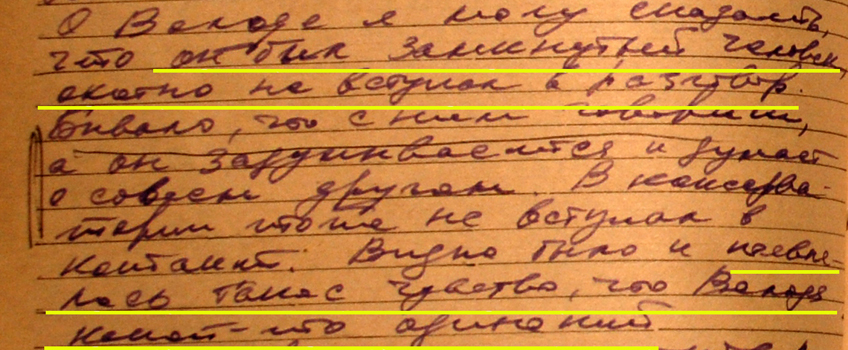 О Володе я могу сказать,
что он был замкнутый человек,
охотно не вступал в разговор.
Бывало, что с ним говоришь,
а он задумывается и думает
о совсем другом. В консерва-
тории тоже не вступал в
контакт. Видно было и появля-
лось такое чувство, что Володя
какой-то одинокий